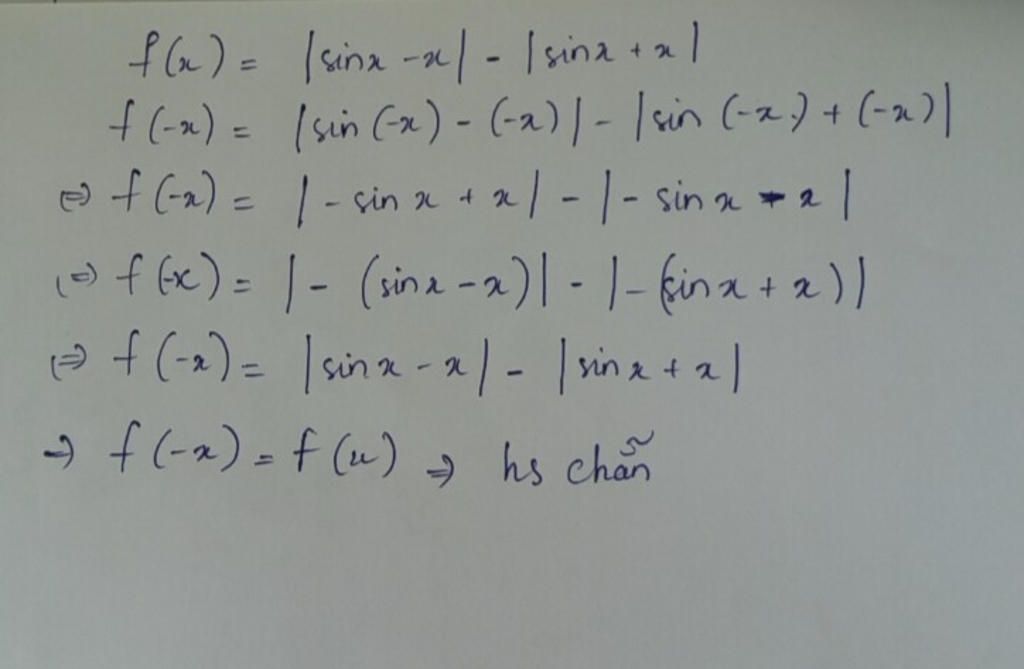 f(x) = |sinx - x| - |sinx + x|
f(-x) = |sin(-x) - (-x)| - |sin(-x) + (-x)|
⇔ f(-x) = |- sin x + x| - |- sin x - x|
⇔ f(-x) = |- (sinx - x)| - |- (sinx + x)|
⇔ f(-x) = |sinx - x| - |sinx + x|
⇒ f(-x) = f(x) ⇒ hs chẵn